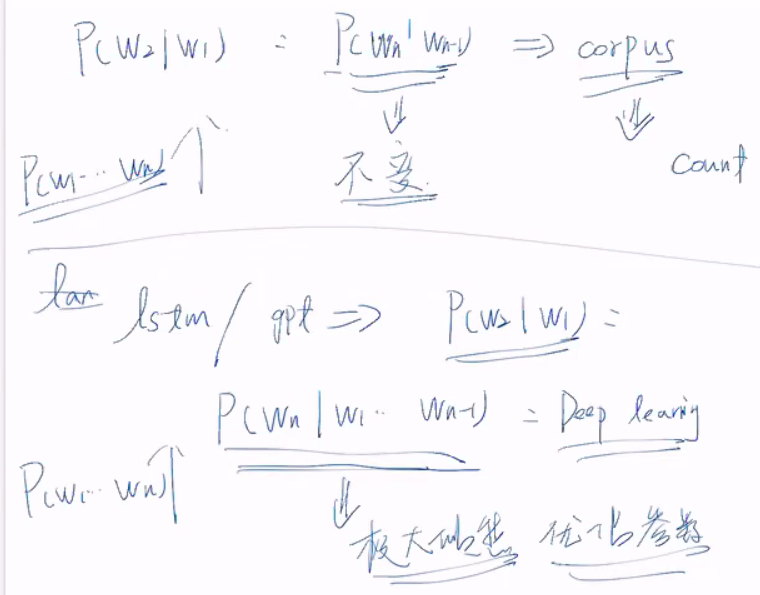 P(w2|w1) = P(wn|wn-1) ⇒ corpus
⇓ ⇓
P(w1... wn)↑ 不变. count
lan lstm / gpt ⇒ P(w2|w1) =
P(wn | w1.. wn-1) = Deep learnig
P(w1... wn)↑ ⇓
极大似然 优化参数